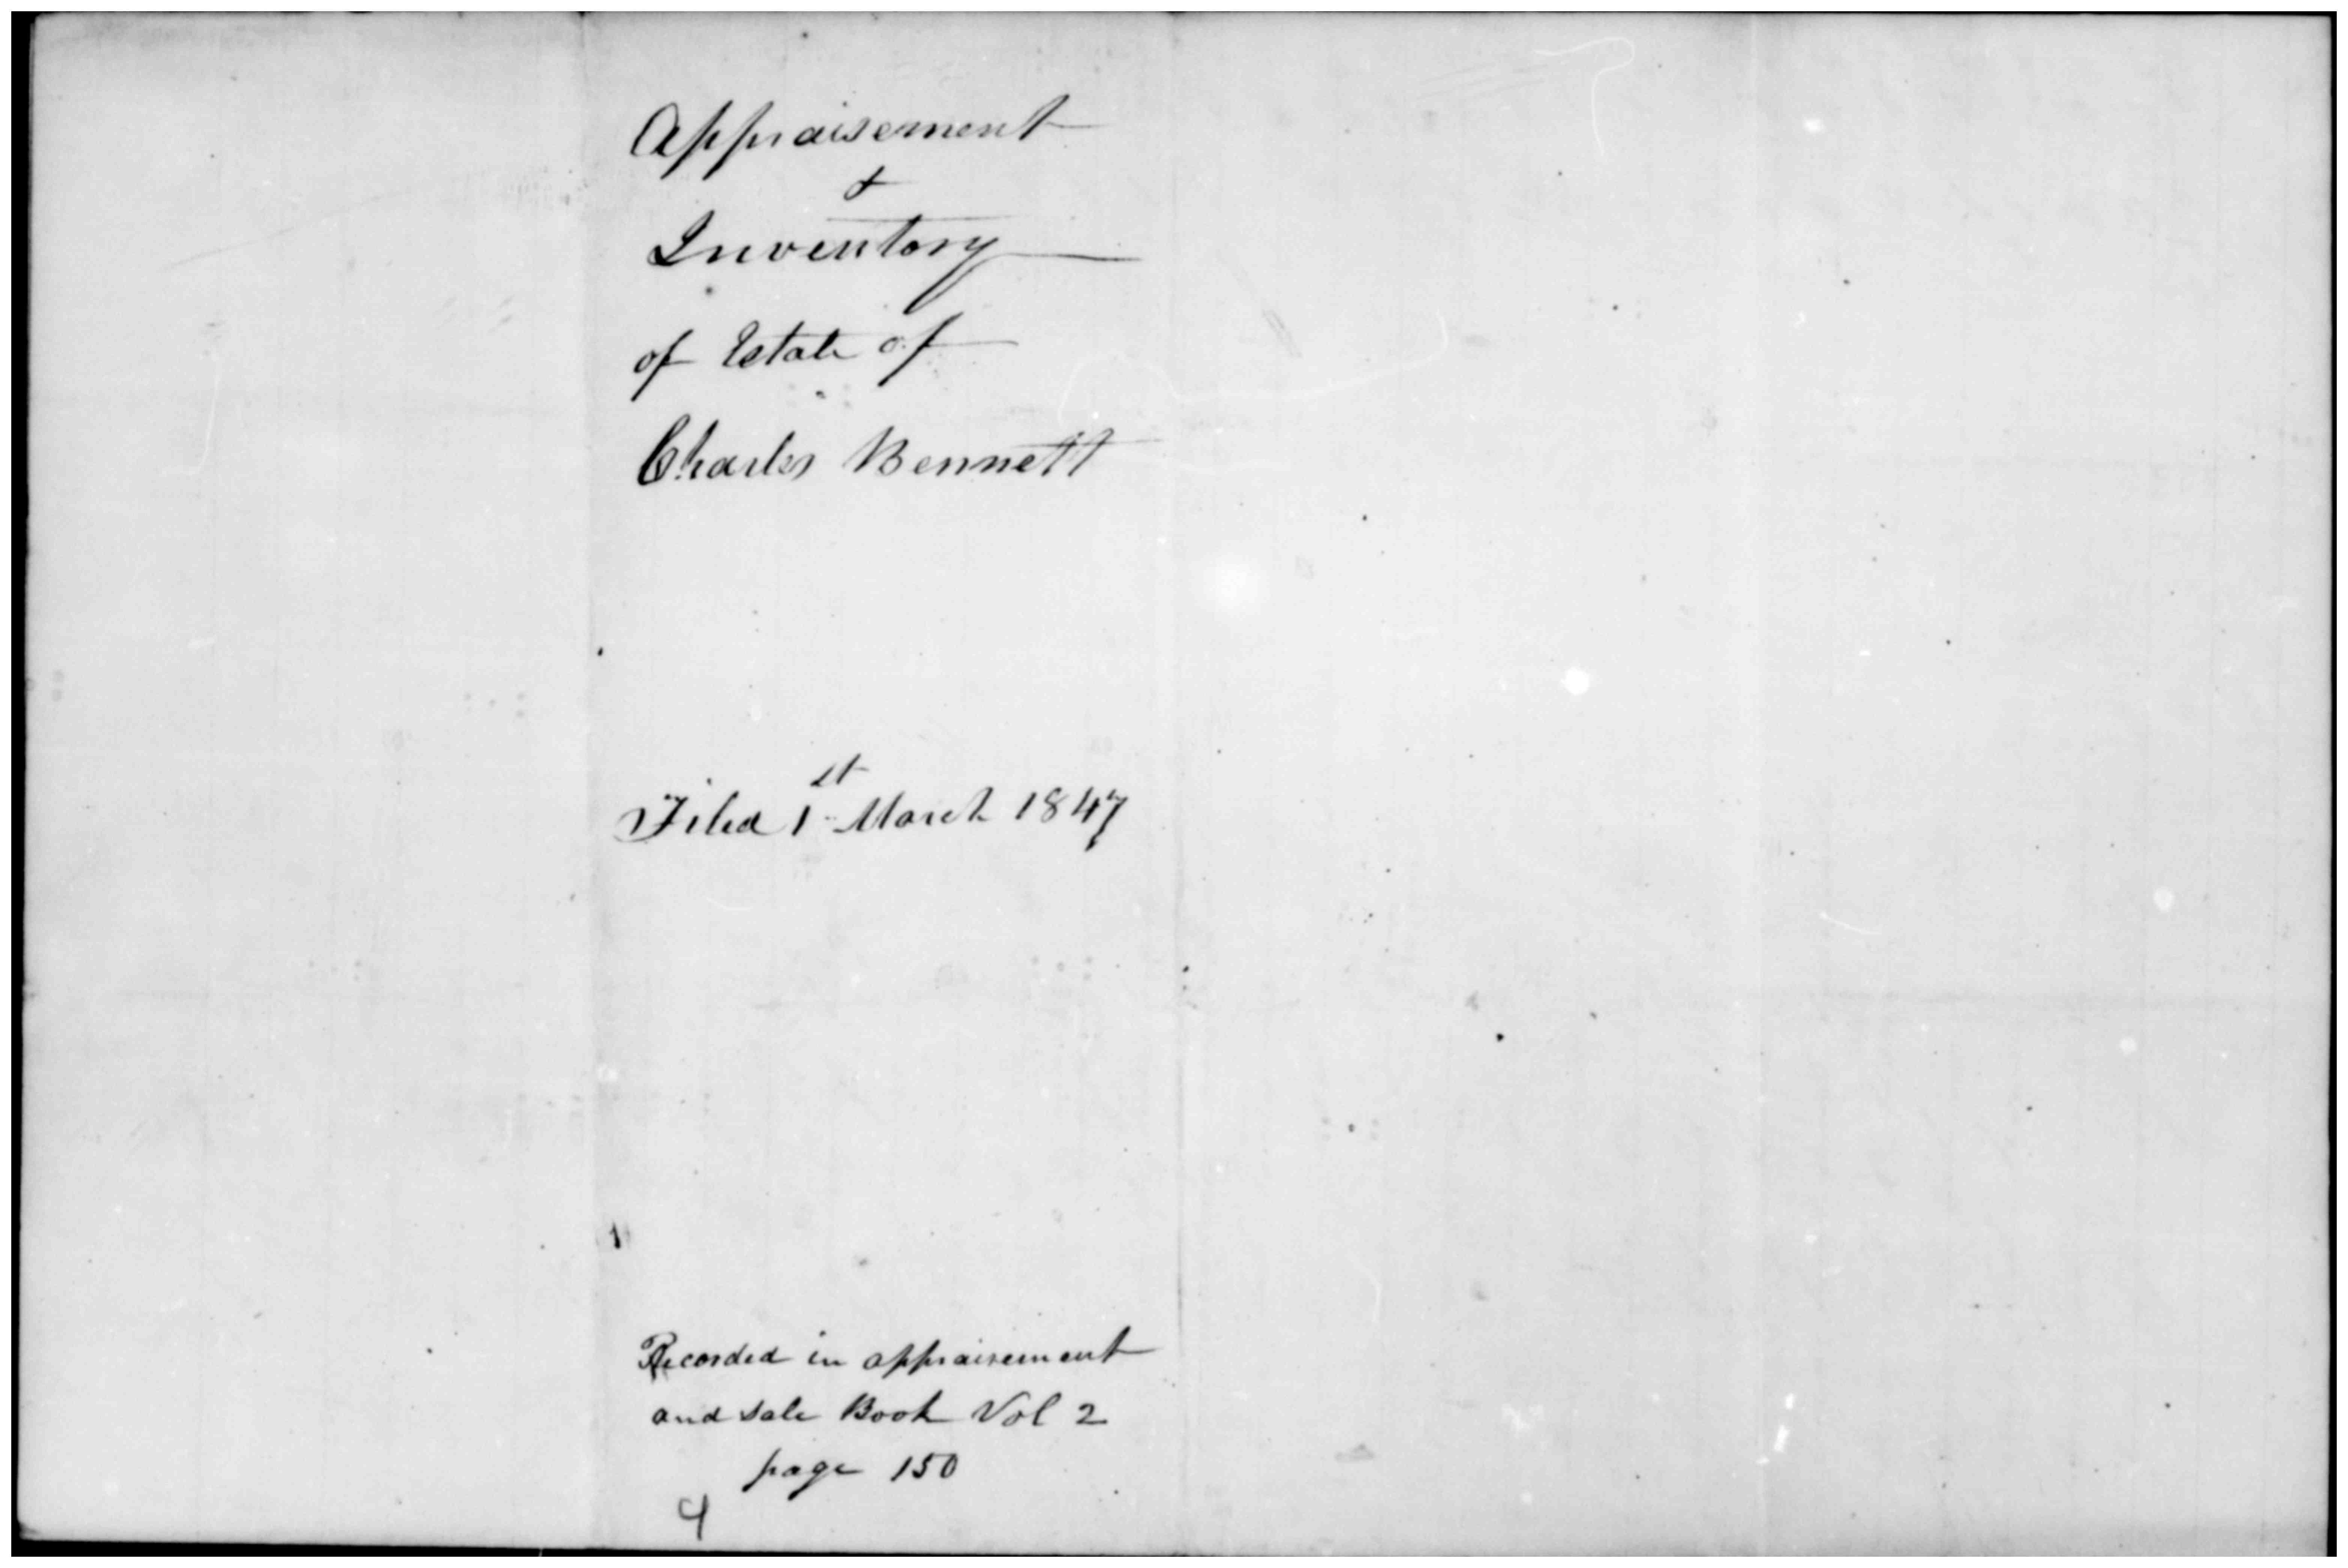 Appraisement
&
Inventory
of Estate of
Charles Bennett
Filed 1st March 1847
Recorded in appraisement
and sale Book Vol 2
page 150
4